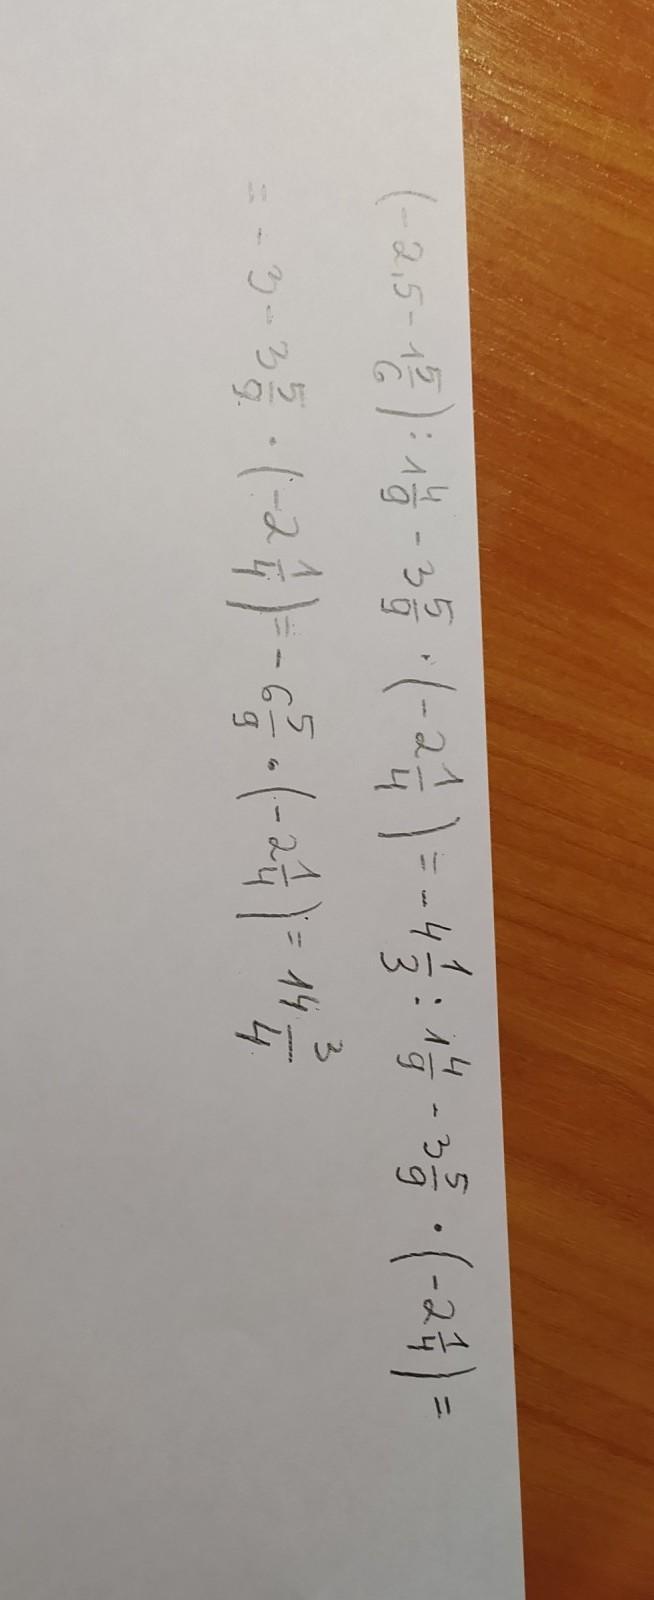 (-2,5-1 5/6):1 4/9-3 5/9·(-2 1/4)=-4 1/3:1 4/9-3 5/9·(-2 1/4)=
=-3-3 5/9·(-2 1/4)=-6 5/9·(-2 1/4)=14 3/4